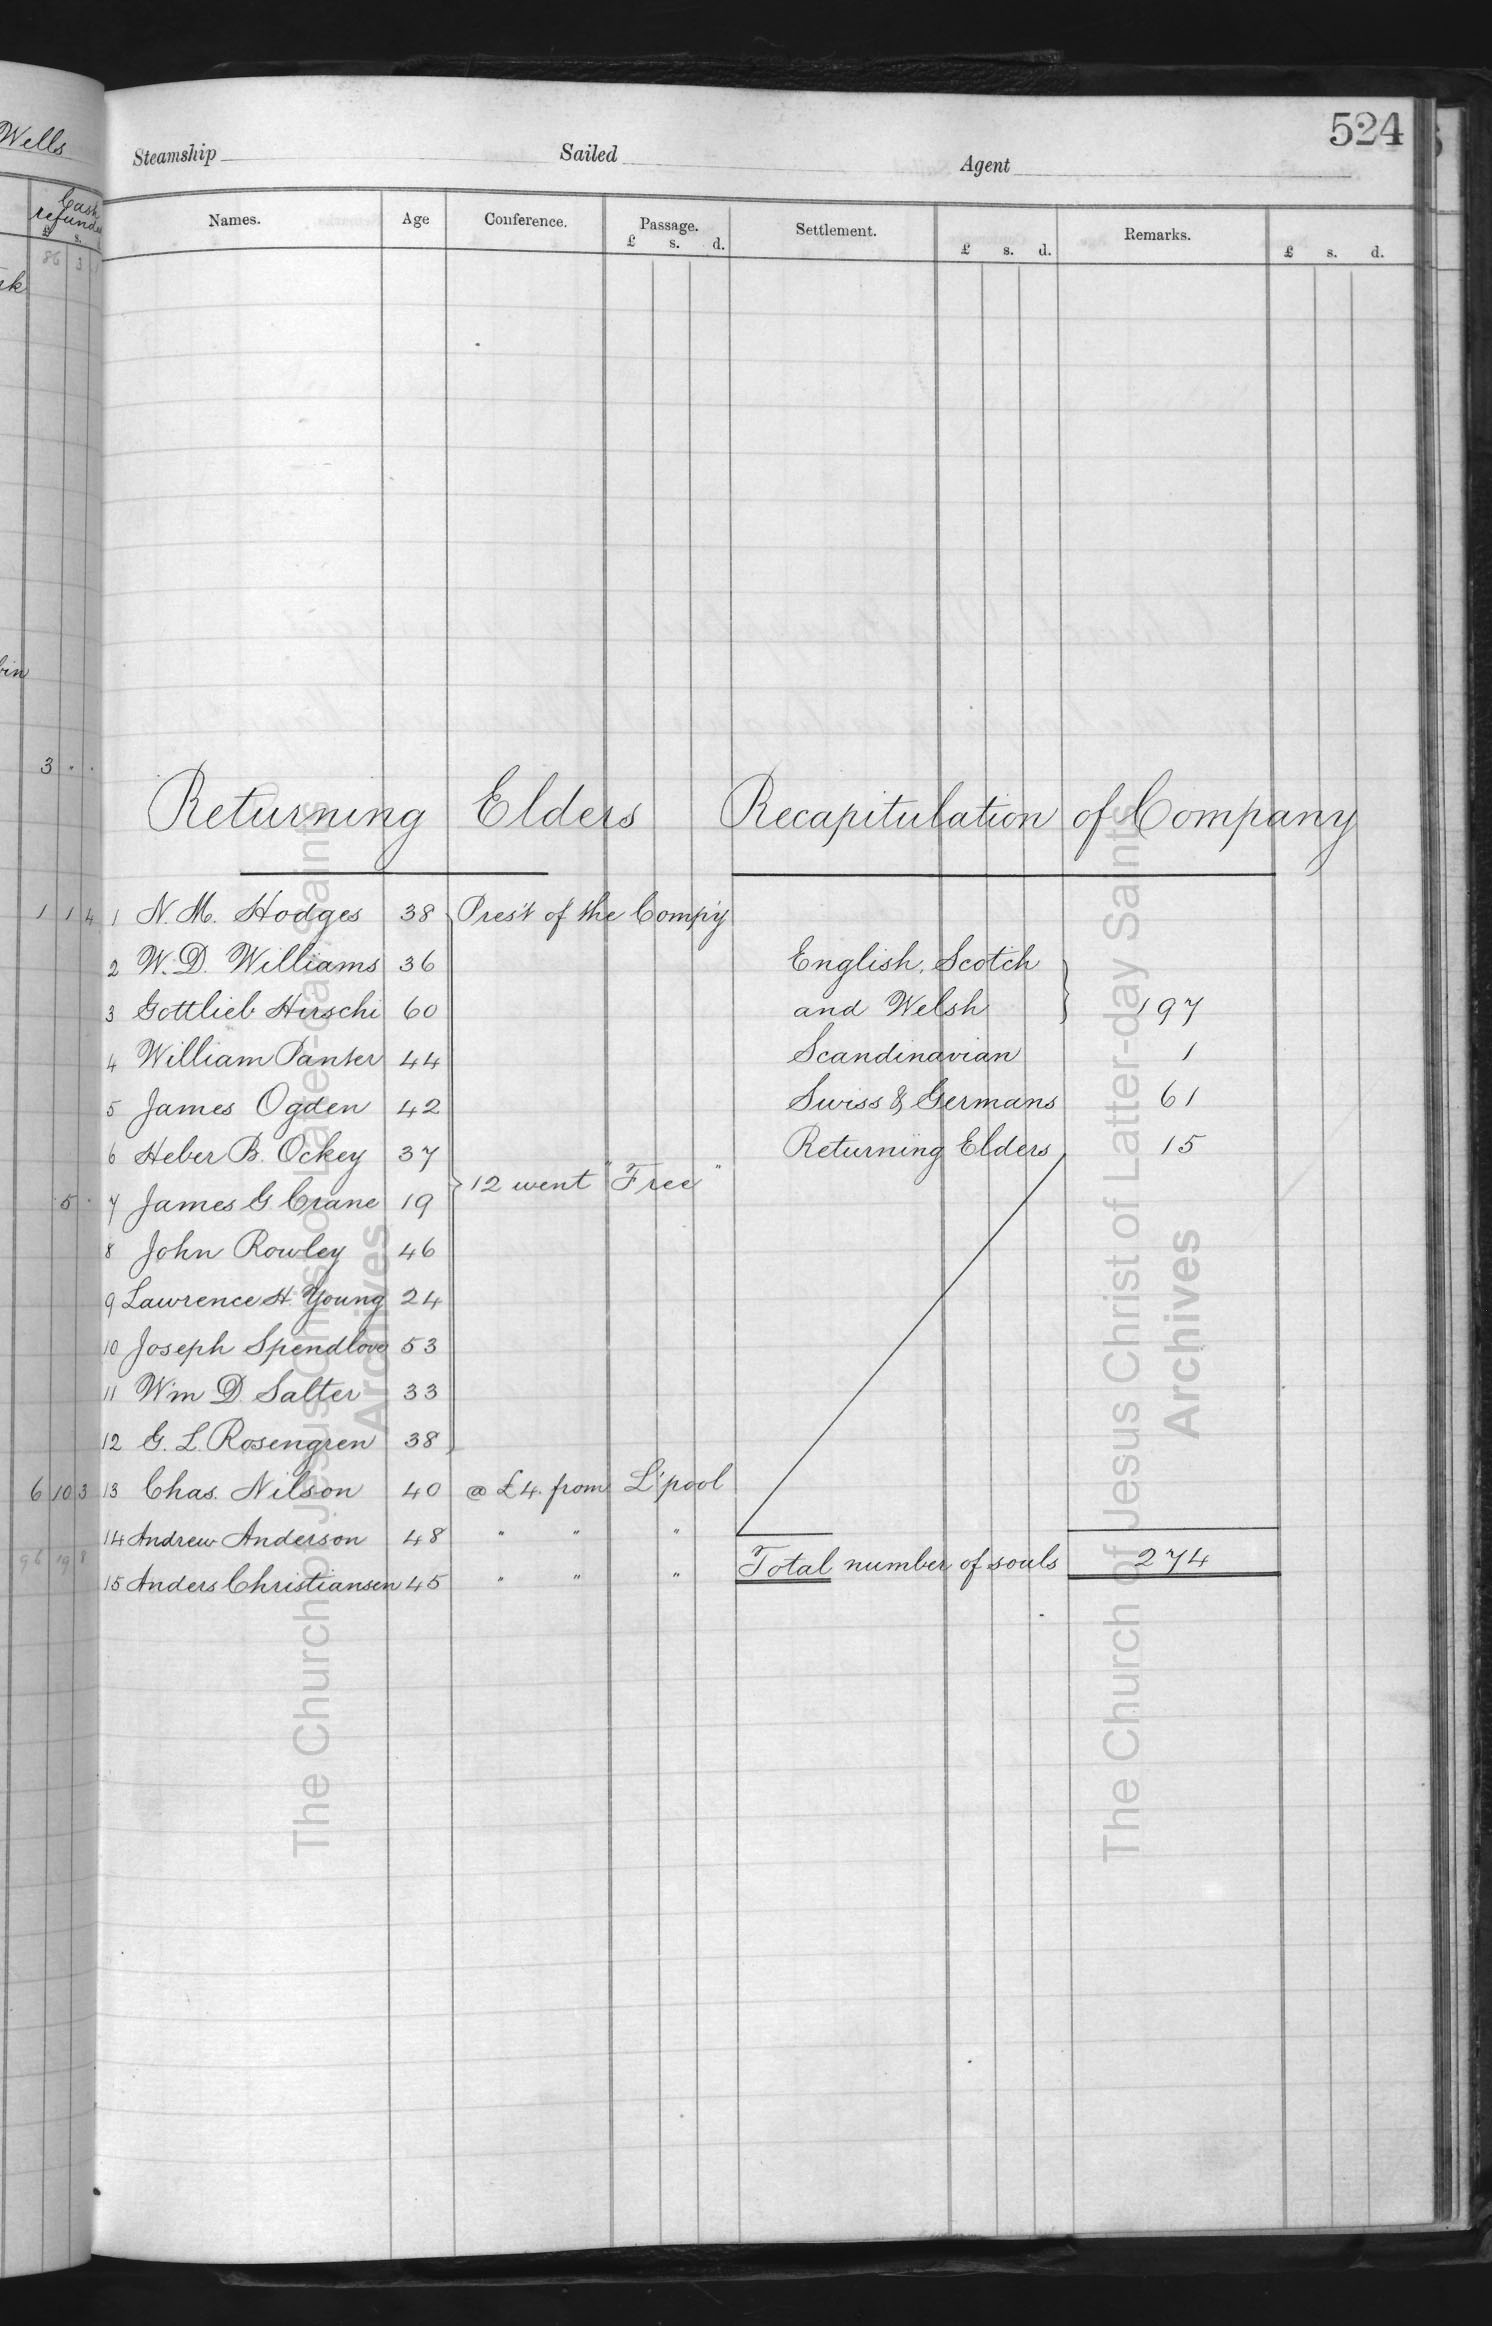 Wells
Cash
refunded
£ s.
86 3
3 . .
1 1 4
5 .
6 10 3
96 19 8
524
Steamship Sailed Agent
Names. Age Conference. Passage. Settlement. Remarks.
£ s. d. £ s. d. £ s. d.
Returning Elders
1 N. M. Hodges 38 Pres't of the Comp'y
2 W. D. Williams 36
3 Gottlieb Hirschi 60
4 William Panter 44
5 James Ogden 42
6 Heber B. Ockey 37
12 went "Free"
7 James G. Crane 19
8 John Rowley 46
9 Lawrence H. Young 24
10 Joseph Spendlove 53
11 Wm D. Salter 33
12 G. L. Rosengren 38
13 Chas. Nilson 40 @ £4. from L'pool
14 Andrew Anderson 48 " " "
15 Anders Christiansen 45 " " "
Recapitulation of Company
English, Scotch
and Welsh } 197
Scandinavian 1
Swiss & Germans 61
Returning Elders 15
Total number of souls 274
The Church of Jesus Christ of Latter-day Saints
Archives
The Church of Jesus Christ of Latter-day Saints
Archives